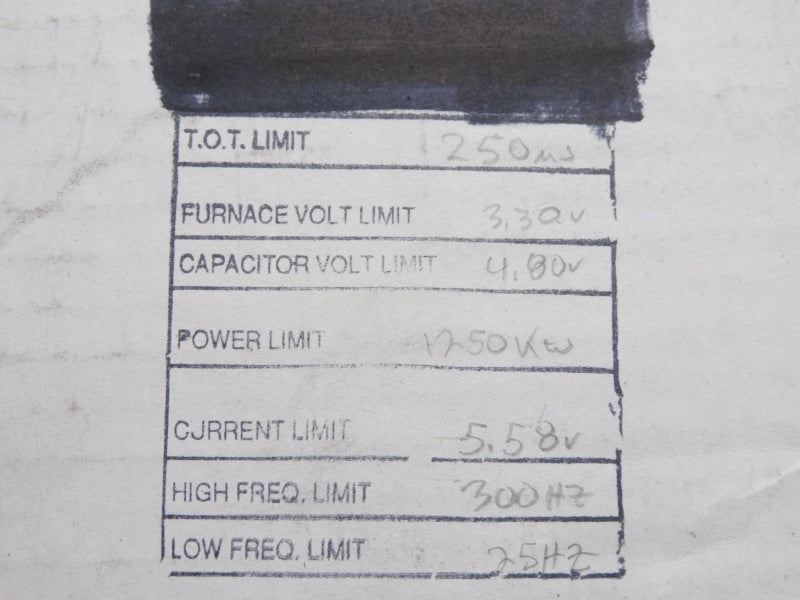 T.O.T. LIMIT 250ms
FURNACE VOLT LIMIT 3.30v
CAPACITOR VOLT LIMIT 4.80v
POWER LIMIT 1250Kw
CURRENT LIMIT 5.58v
HIGH FREQ. LIMIT 300HZ
LOW FREQ. LIMIT 25HZ